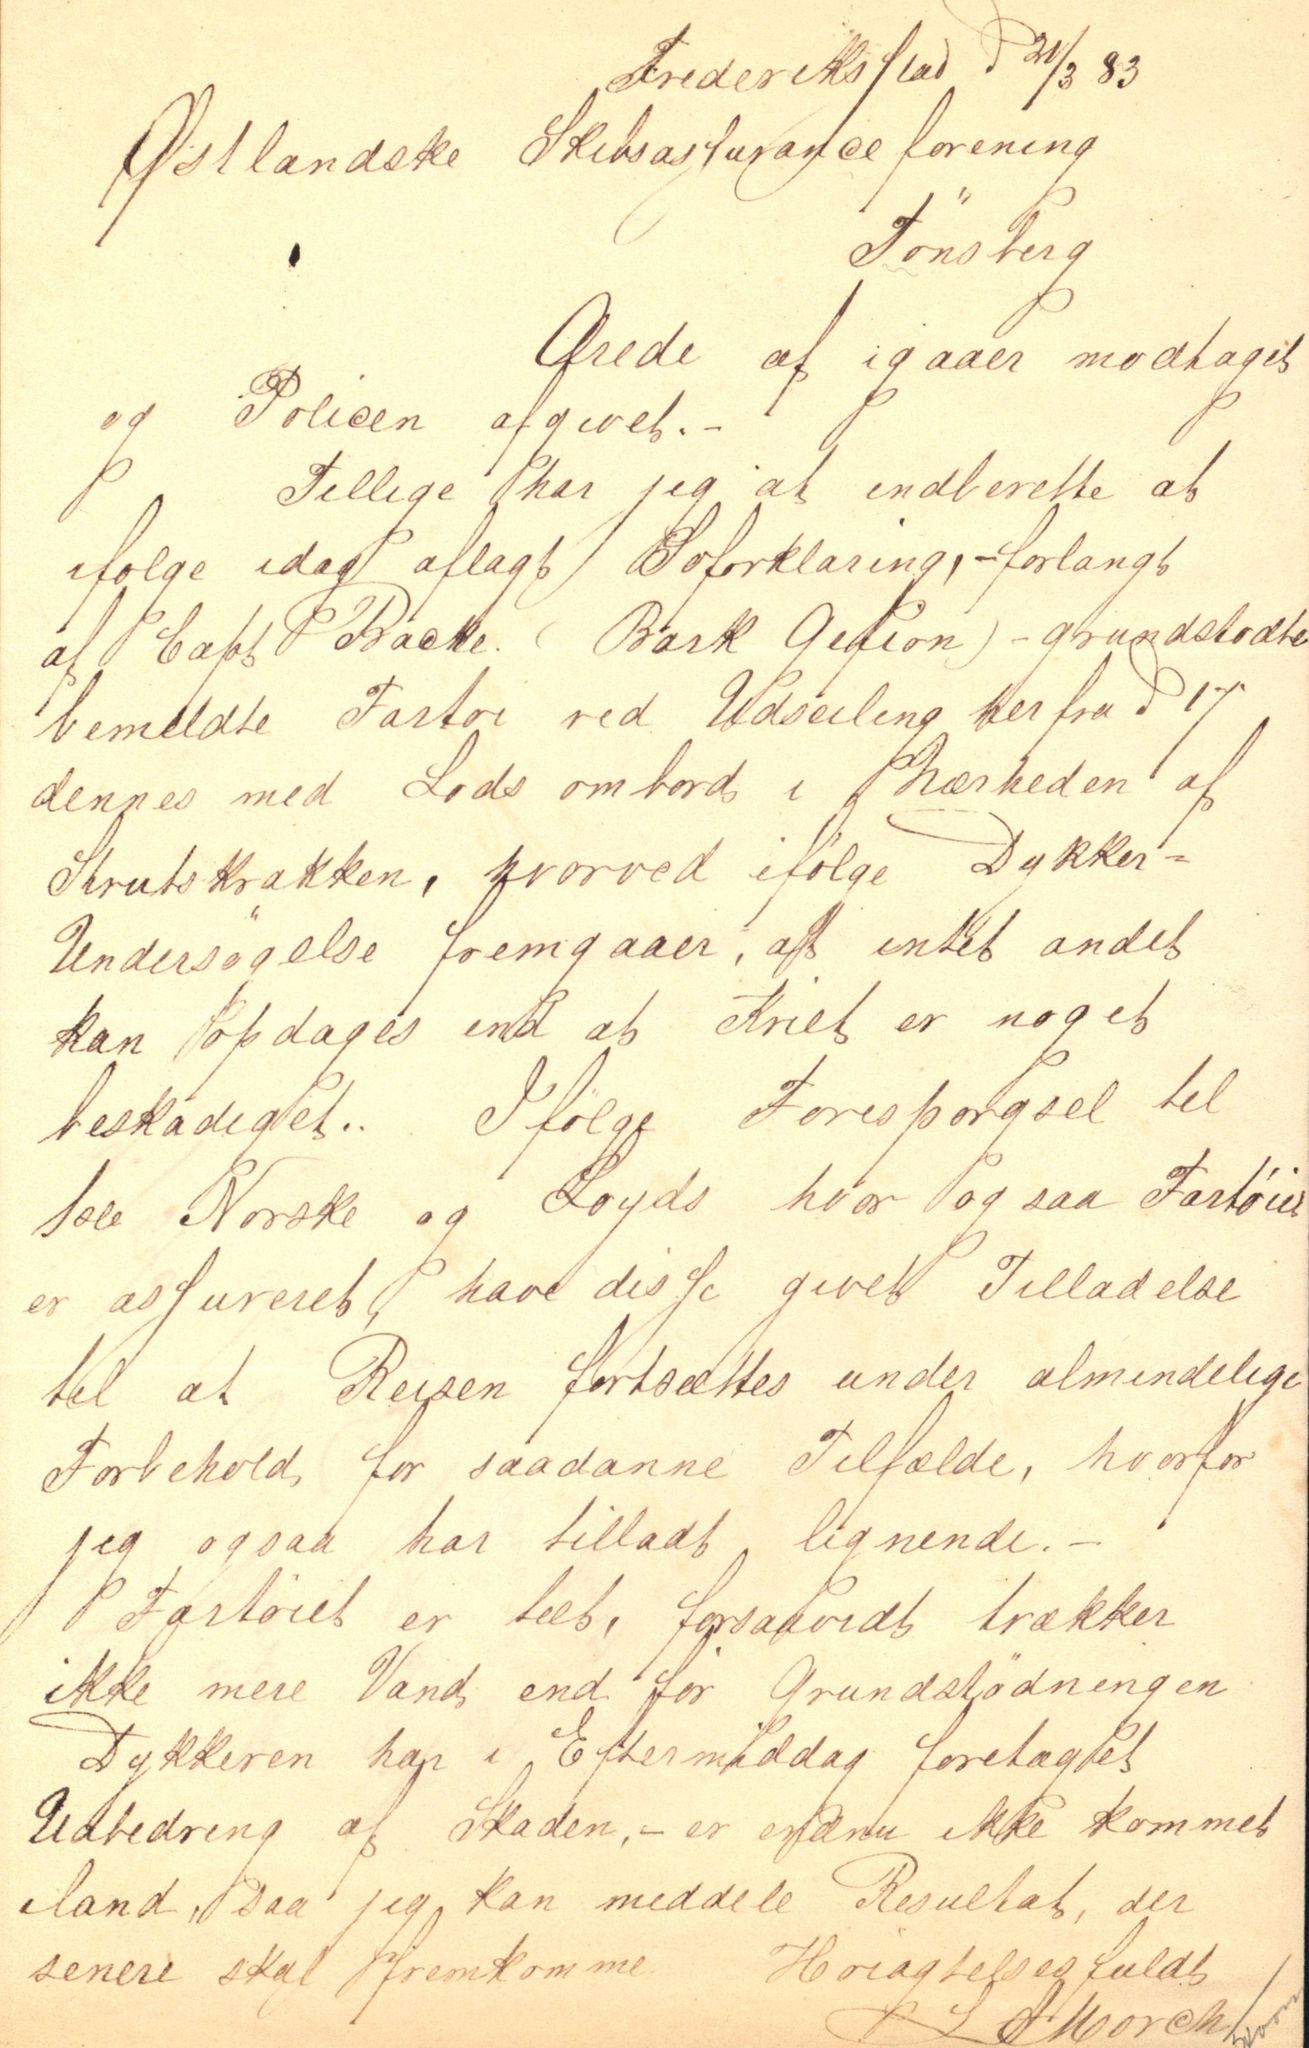 Frederiksstad d 21/3 83
Østlandske Skibsassuranceforening
Tönsberg
Ærede af igaaer modtaget
og Policen afgivet. -
Tillige har jeg at indberette at
ifolge idag aflagt Soforklaring, - forlangt
af Capt Backe. (Bark Gefion) - grundstodte
bemeldte Fartoi ved Udseiling herfra d 17
dennes med Lods ombord i Nærheden af
Strutskrakken, hvorved ifölge Dykker-
Undersögelse fremgaaer, at intet andet
kan opdages end at Kriet er noget
beskadiget.. Ifölge Foresporgsel til
det Norske og Loyds hvor ogsaa Fartöiet
er assureret, have disse givet Tilladelse
til at Reisen fortsættes under almindelige
Forbehold for saadanne Tilfælde, hvorfor
jeg ogsaa har tilladt lignende. -
Fartöiet er tæt, forsaavidt trækker
ikke mere Vand end för Grundstödningen
Dykkeren har i Eftermiddag foretaget
Udbedring af Skaden, - er endnu ikke kommet
iland, saa jeg kan meddele Resultat, der
senere skal fremkomme Hoiagtelsesfuldt
Morch